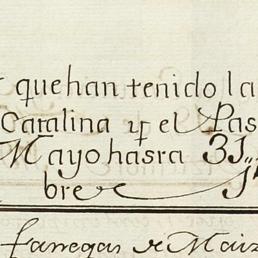 que han tenido la
Catalina y el Pas
Mayo hasta 31,,
bre
fanegas de Maiz